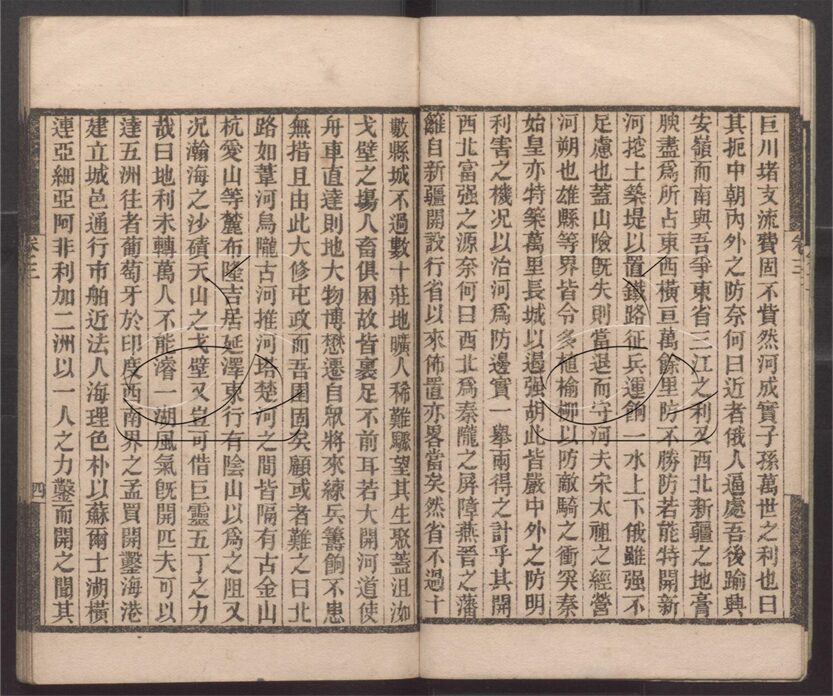 卷三
巨川堵支流費固不貲然河成實子孫萬世之利也曰
其扼中朝內外之防奈何曰近者俄人逼處吾後踰興
安嶺而南與吾爭東省三江之利又西北新疆之地膏
腴盡爲所占東西橫亘萬餘里防不勝防若能特開新
河挖土築堤以置鐵路征兵運餉一水上下俄雖强不
足慮也蓋山險旣失則當退而守河夫宋太祖之經營
河朔也雄縣等界皆令多植榆柳以防敵騎之衝突秦
始皇亦特築萬里長城以遏强胡此皆嚴中外之防明
利害之機况以治河爲防邊實一舉兩得之計乎其開
西北富强之源奈何曰西北爲秦隴之屏障燕晉之藩
籬自新疆開設行省以來佈置亦畧當矣然省不過十
數縣城不過數十莊地曠人稀難驟望其生聚蓋沮洳
戈壁之場人畜俱困故皆裹足不前耳若大開河道使
舟車直達則地大物博懋遷自眾將來練兵籌餉不患
無措且由此大修屯政而吾圉固矣顧或者難之曰北
路如葦河烏隴古河推河塔楚河之間皆隔有古金山
杭愛山等麓布隆吉居延澤東行有陰山以爲之阻又
况瀚海之沙磧天山之戈壁又豈可借巨靈五丁之力
哉曰地利未轉萬人不能濬一湖風氣旣開匹夫可以
達五洲往者葡萄牙於印度西南界之孟買開鑿海港
建立城邑通行市舶近法人海理色朴以蘇爾士湖橫
連亞細亞阿非利加二洲以一人之力鑿而開之聞其
卷三
四